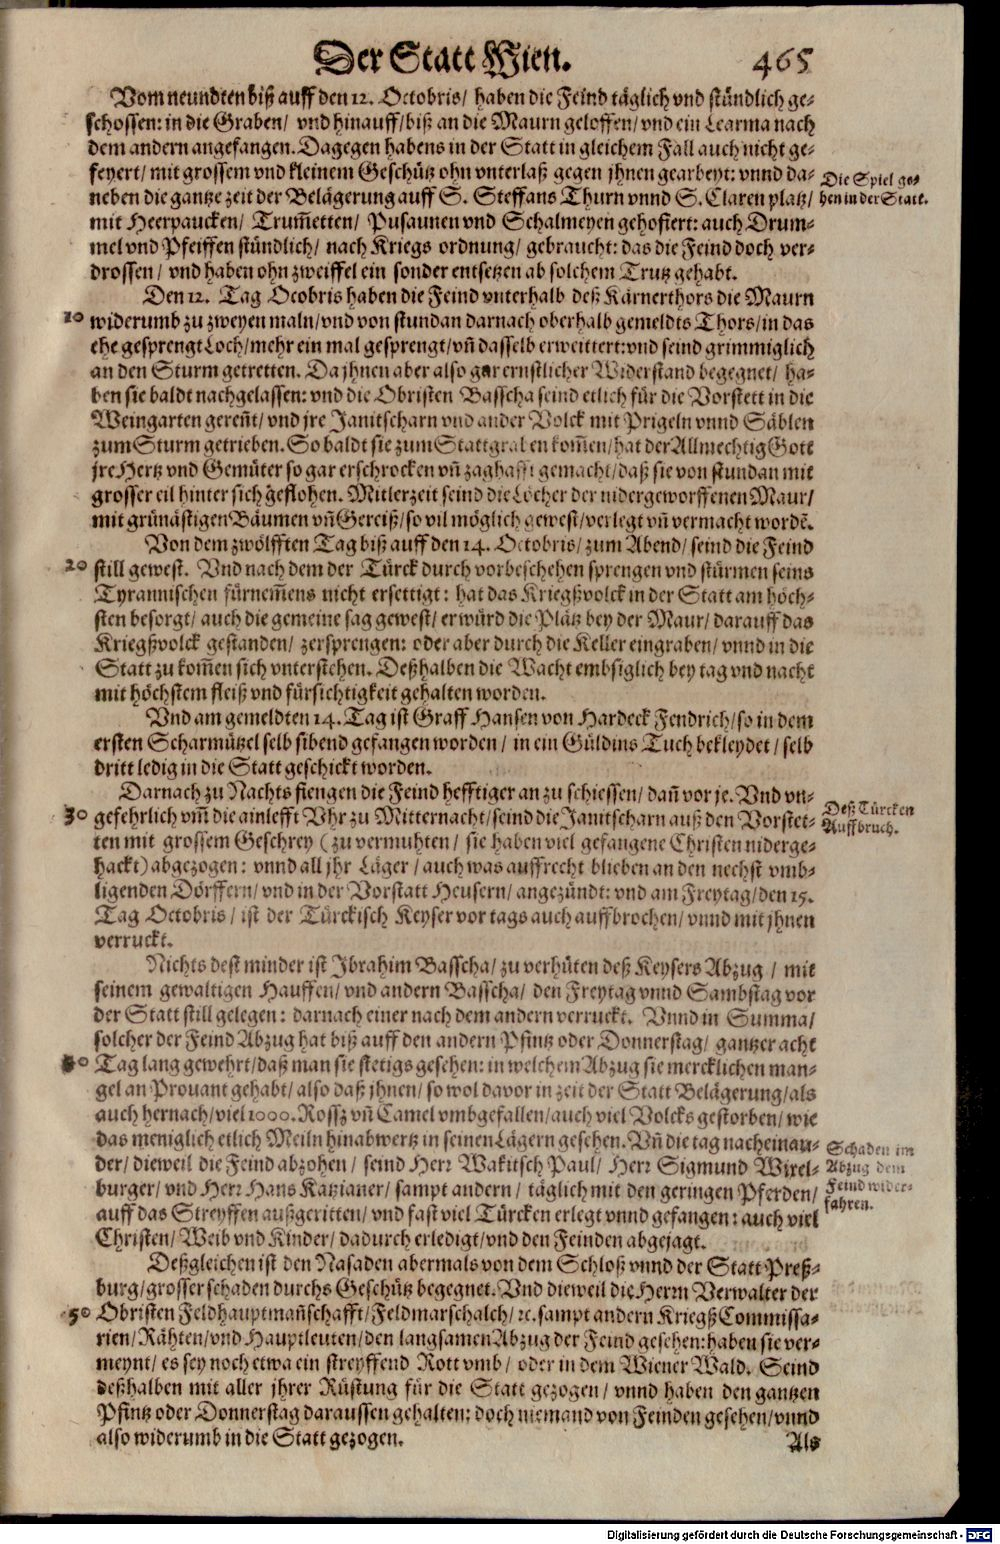 Der Statt Wien. 465
Vom neundten biß auff den 12. Octobris/ haben die Feind täglich vnd stündlich ge-
schossen: in die Graben/ vnd hinauff/ biß an die Maurn geloffen/ vnd ein Learma nach
dem andern angefangen. Dagegen habens in der Statt in gleichem Fall auch nicht ge-
feyert/ mit grossem vnd kleinem Geschütz ohn vnterlaß gegen jhnen gearbeyt: vnnd da-
neben die gantze zeit der Belägerung auff S. Steffans Thurn vnnd S. Claren platz/
Die Spiel ge-
hen in der Statt.
mit Heerpaucken/ Trum̃etten/ Pusaunen vnd Schalmeyen gehofiert: auch Drum-
mel vnd Pfeiffen stündlich/ nach Kriegs ordnung/ gebraucht: das die Feind doch ver-
drossen/ vnd haben ohn zweiffel ein sonder entsetzen ab solchem Trutz gehabt.
Den 12. Tag Ocobris haben die Feind vnterhalb deß Kärnerthors die Maurn
10 widerumb zu zweyen maln/ vnd von stundan darnach oberhalb gemeldts Thors/ in das
ehe gesprengt Loch/ mehr ein mal gesprengt/ vñ dasselb erweittert: vnd seind grimmiglich
an den Sturm getretten. Da jhnen aber also gar ernstlicher Widerstand begegnet/ ha-
ben sie baldt nachgelassen: vnd die Obristen Basscha seind etlich für die Vorstett in die
Weingarten gereñt/ vnd jre Janitscharn vnd ander Volck mit Prigeln vnnd Säblen
zum Sturm getrieben. So baldt sie zum Stattgraben kom̃en/ hat der Allmechtig Gott
jre Hertz vnd Gemüter so gar erschrocken vñ zaghafft gemacht/ daß sie von stundan mit
grosser eil hinter sich geflohen. Mitlerzeit seind die Löcher der nidergeworffenen Maur/
mit grünästigen Bäumen vñ Gereiß/ so vil möglich gewest/ verlegt vñ vermacht wordẽ.
Von dem zwölfften Tag biß auff den 14. Octobris/ zum Abend/ seind die Feind
20 still gewest. Vnd nach dem der Türck durch vorbeschehen sprengen vnd stürmen seins
Tyrannischen fürnem̃ens nicht ersettigt: hat das Kriegßvolck in der Statt am höch-
sten besorgt/ auch die gemeine sag gewest/ er würd die Plätz bey der Maur/ darauff das
Kriegßvolck gestanden/ zersprengen: oder aber durch die Keller eingraben/ vnnd in die
Statt zu kom̃en sich vnterstehen. Deßhalben die Wacht embsiglich bey tag vnd nacht
mit höchstem fleiß vnd fürsichtigkeit gehalten worden.
Vnd am gemeldten 14. Tag ist Graff Hansen von Hardeck Fendrich/ so in dem
ersten Scharmützel selb sibend gefangen worden/ in ein Güldins Tuch bekleydet/ selb
dritt ledig in die Statt geschickt worden.
Darnach zu Nachts fiengen die Feind hefftiger an zu schiessen/ dañ vor je. Vnd vn-
30 gefehrlich vm̃ die ainlefft Vhr zu Mitternacht/ seind die Janitscharn auß den Vorstet-
Deß Türcken
Auffbruch.
ten mit grossem Geschrey (zu vermuhten/ sie haben viel gefangene Christen niderge-
hackt) abgezogen: vnnd all jhr Läger/ auch was auffrecht blieben an den nechst vmb-
ligenden Dörffern/ vnd in der Vorstatt Heusern/ angezündt: vnd am Freytag/ den 15.
Tag Octobris/ ist der Türckisch Keyser vor tags auch auffbrochen/ vnnd mit jhnen
verruckt.
Nichts dest minder ist Jbrahim Basscha/ zu verhüten deß Keysers Abzug/ mit
seinem gewaltigen Hauffen/ vnd andern Basscha/ den Freytag vnnd Sambstag vor
der Statt still gelegen: darnach einer nach dem andern verruckt. Vnnd in Summa/
solcher der Feind Abzug hat biß auff den andern Pfintz oder Donnerstag/ gantzer acht
40 Tag lang gewehrt/ daß man sie stetigs gesehen: in welchem Abzug sie mercklichen man-
gel an Prouant gehabt/ also daß jhnen/ so wol davor in zeit der Statt Belägerung/ als
auch hernach/ viel 1000. Rossz vñ Camel vmbgefallen/ auch viel Volcks gestorben/ wie
das meniglich etlich Meiln hinabwertz in seinen Lägern gesehen. Vñ die tag nacheinan-
Schaden im
Abzug dem
Feind wider-
fahren.
der/ dieweil die Feind abzohen/ seind Herr Wakitsch Paul/ Herr Sigmund Wixel-
burger/ vnd Herr Hans Katzianer/ sampt andern/ täglich mit den geringen Pferden/
auff das Streyffen außgeritten/ vnd fast viel Türcken erlegt vnnd gefangen: auch viel
Christen/ Weib vnd Kinder/ dadurch erledigt/ vnd den Feinden abgejagt.
Deßgleichen ist den Nasaden abermals von dem Schloß vnnd der Statt Preß-
burg/ grosser schaden durchs Geschütz begegnet. Vnd dieweil die Herrn Verwalter der
50 Obristen Feldhauptmañschafft/ Feldmarschalch/ ꝛc. sampt andern Kriegß Commissa-
rien/ Rähten/ vnd Hauptleuten/ den langsamen Abzug der Feind gesehen: haben sie ver-
meynt/ es sey noch etwa ein streyffend Rott vmb/ oder in dem Wiener Wald. Seind
deßhalben mit aller jhrer Rüstung für die Statt gezogen/ vnnd haben den gantzen
Pfintz oder Donnerstag daraussen gehalten: doch niemand von Feinden gesehen/ vnnd
also widerumb in die Statt gezogen.
Als
Digitalisierung gefördert durch die Deutsche Forschungsgemeinschaft - DFG